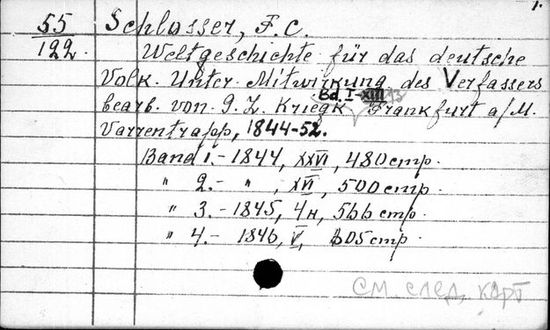 1.
55 Schlosser, F. C.
122. Weltgeschichte für das deutsche
Volk. Unter Mitwirkung des Verfassers
bearb. von G. L. Kriegk Bd. I-XIII Frankfurt a/M.
Varrentrapp, 1844-52.
Band 1.- 1844, XXVI, 480 стр.
" 2.- ", XVI, 500 стр.
" 3.- 1845, 4н, 566 стр.
" 4.- 1846, V, 605 стр.
См. след. карт